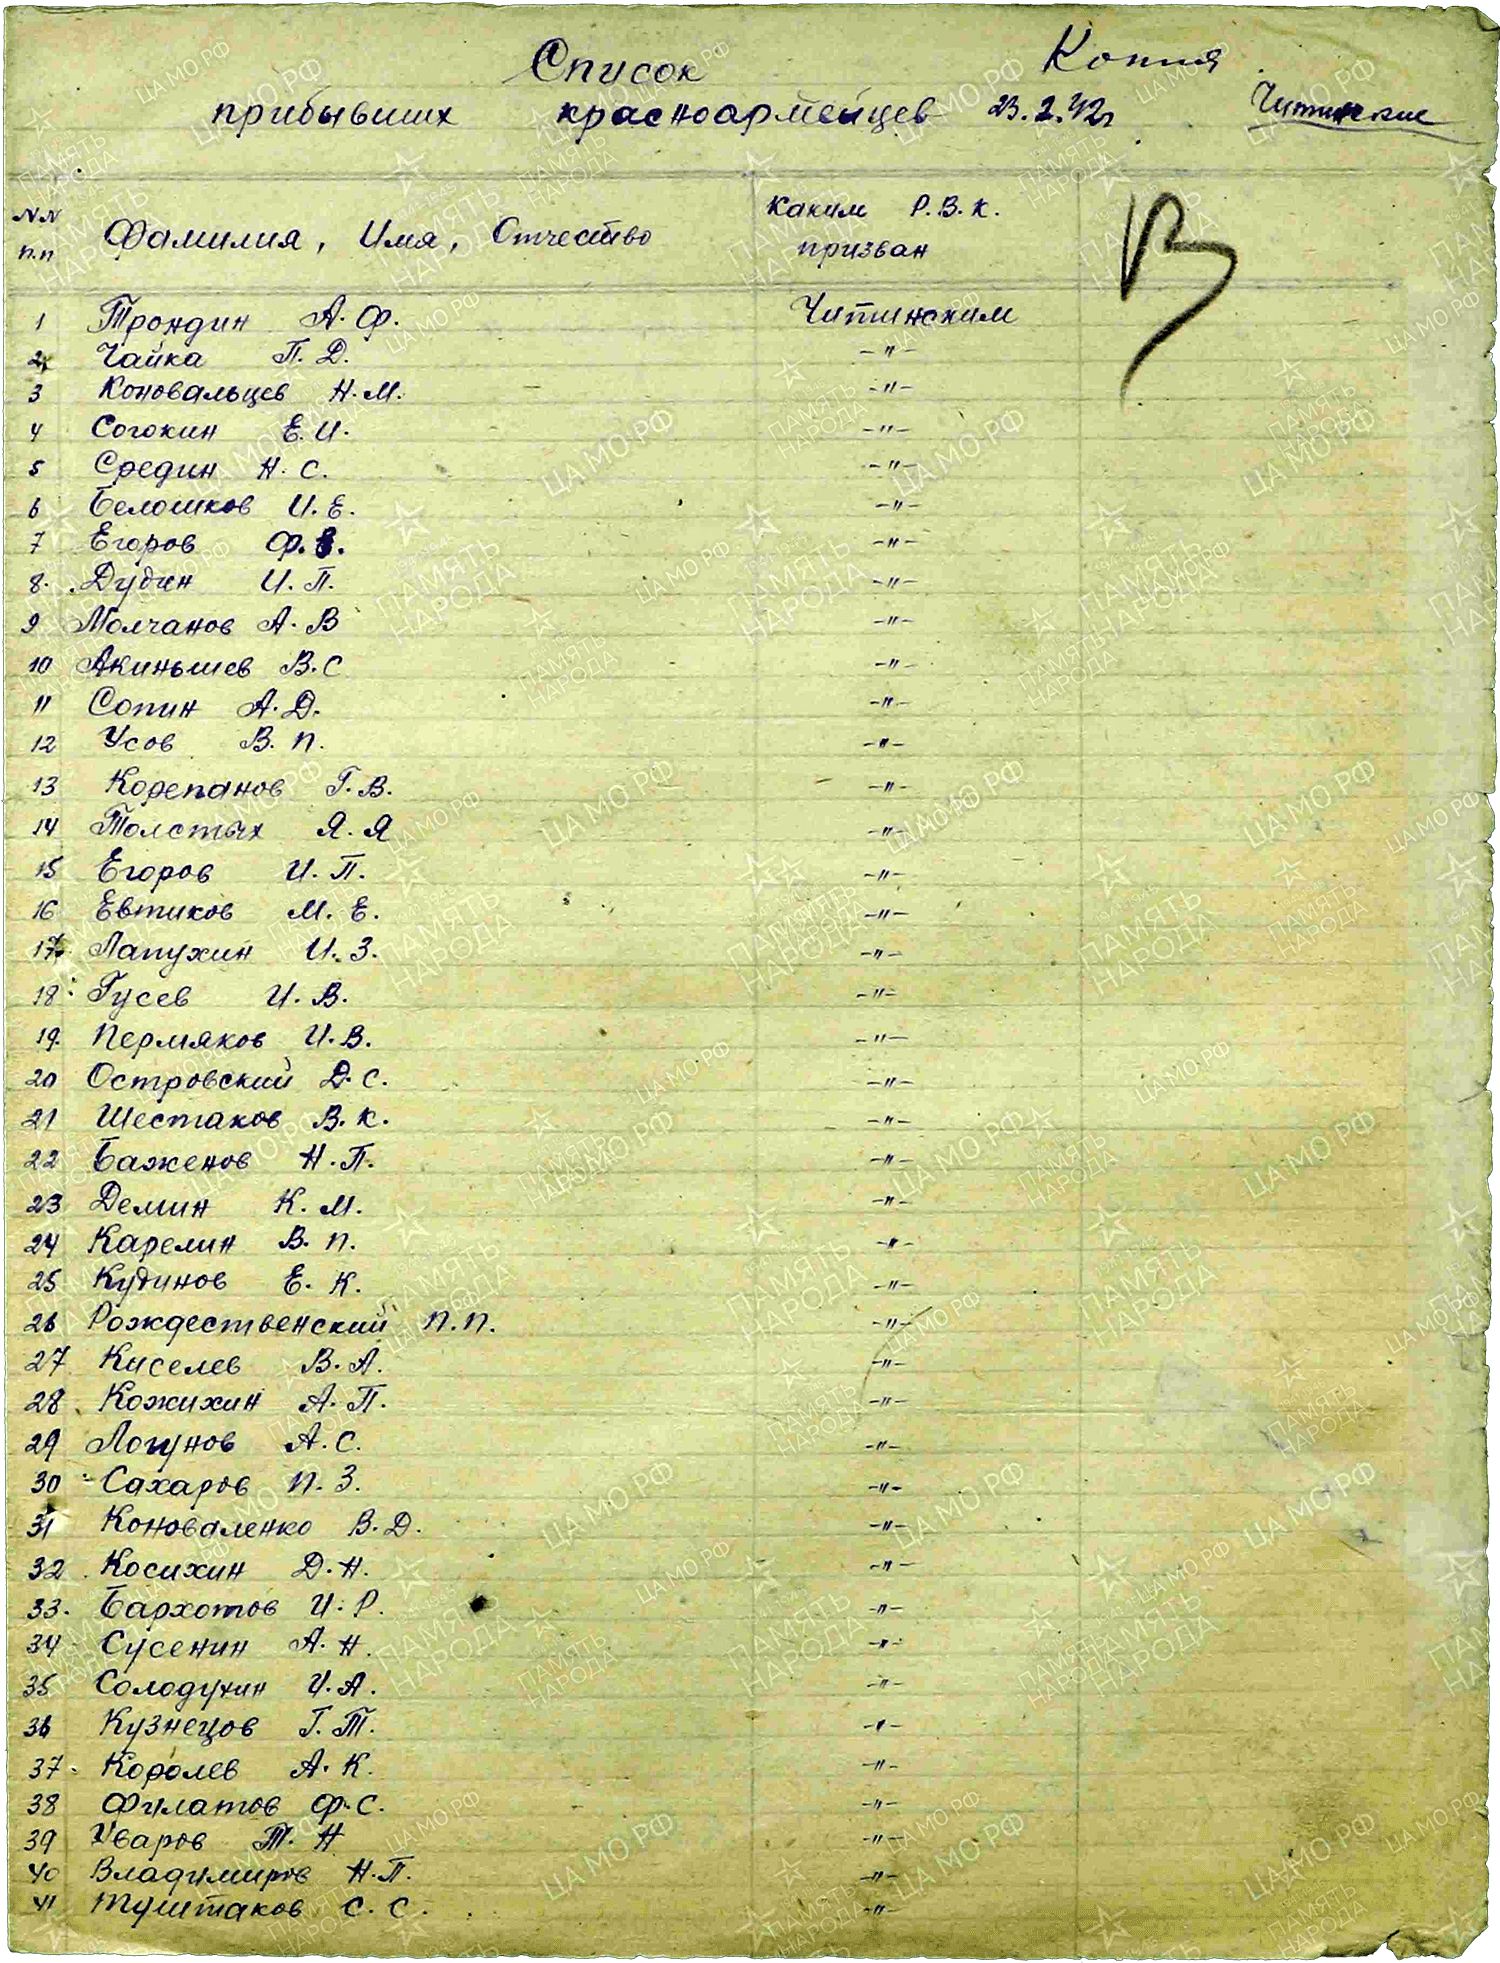 Список
Копия
прибывших красноармейцев 23.2.42г
Читинские
NN п.п
Фамилия, Имя, Отчество
Каким Р.В.К. призван
В
1 Трондин А.Ф. Читинским
2 Чайка П.Д. –"–
3 Коновальцев Н.М. –"–
4 Согокин Е.И. –"–
5 Средин Н.С. –"–
6 Белошков И.Е. –"–
7 Егоров Ф.Е. –"–
8. Дудин И.П. –"–
9 Молчанов А.В –"–
10 Акиньшев В.С –"–
11 Сопин А.Д. –"–
12 Усов В.П. –"–
13 Корепанов Г.В. –"–
14 Толстых Я.Я –"–
15 Егоров И.П. –"–
16 Евтиков М.Е. –"–
17. Лапухин И.З. –"–
18 Гусев И.В. –"–
19. Пермяков И.В. –"–
20 Островский Д.С. –"–
21 Шестаков В.К. –"–
22 Баженов Н.П. –"–
23 Демин К.М. –"–
24 Карелин В.П. –"–
25 Кудинов Е.К. –"–
26 Рождественский П.П. –"–
27 Киселев В.А. –"–
28. Кожихин А.П. –"–
29 Логунов А.С. –"–
30 Сахаров П.З. –"–
31 Коноваленко В.Д. –"–
32. Косихин Д.Н. –"–
33. Бархотов И.Р. –"–
34 Сусенин А.Н. –"–
35 Солодухин И.А. –"–
36 Кузнецов Г.Т. –"–
37. Королев А.К. –"–
38 Филатов Ф.С. –"–
39 Уваров Т.Н –"–
40 Владимиров Н.П. –"–
41 Туштаков С.С. –"–
ЦА МО РФ
ПАМЯТЬ НАРОДА